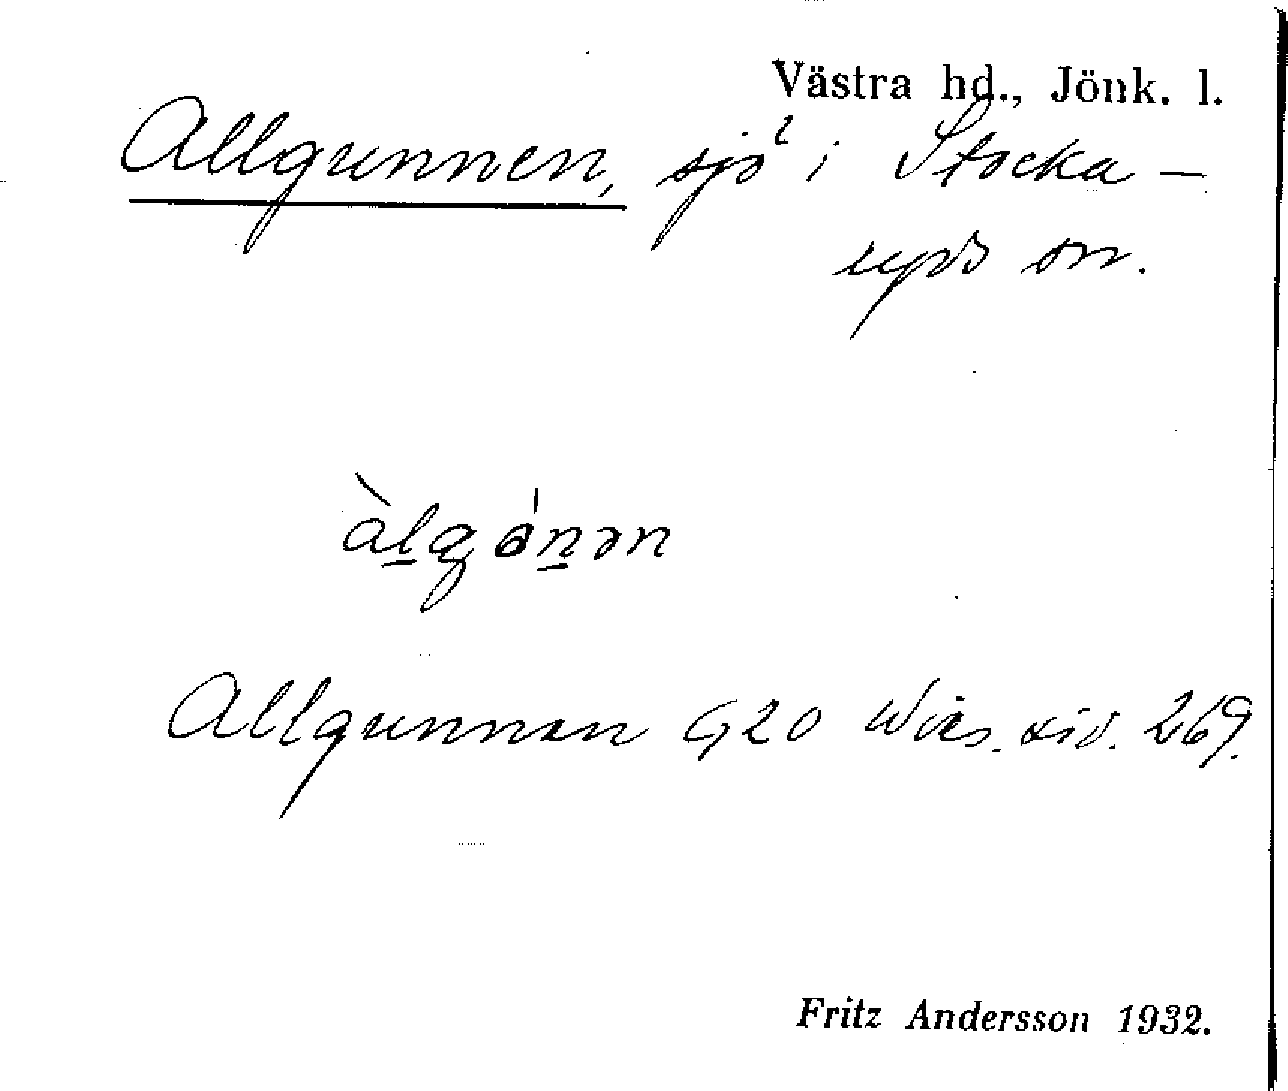 Västra hd., Jönk. l.
Allgunnen, sjö i Stocka-
ryds sn.
àlgónən
Allgunnen G20 Wies. sid. 269.
Fritz Andersson 1932.